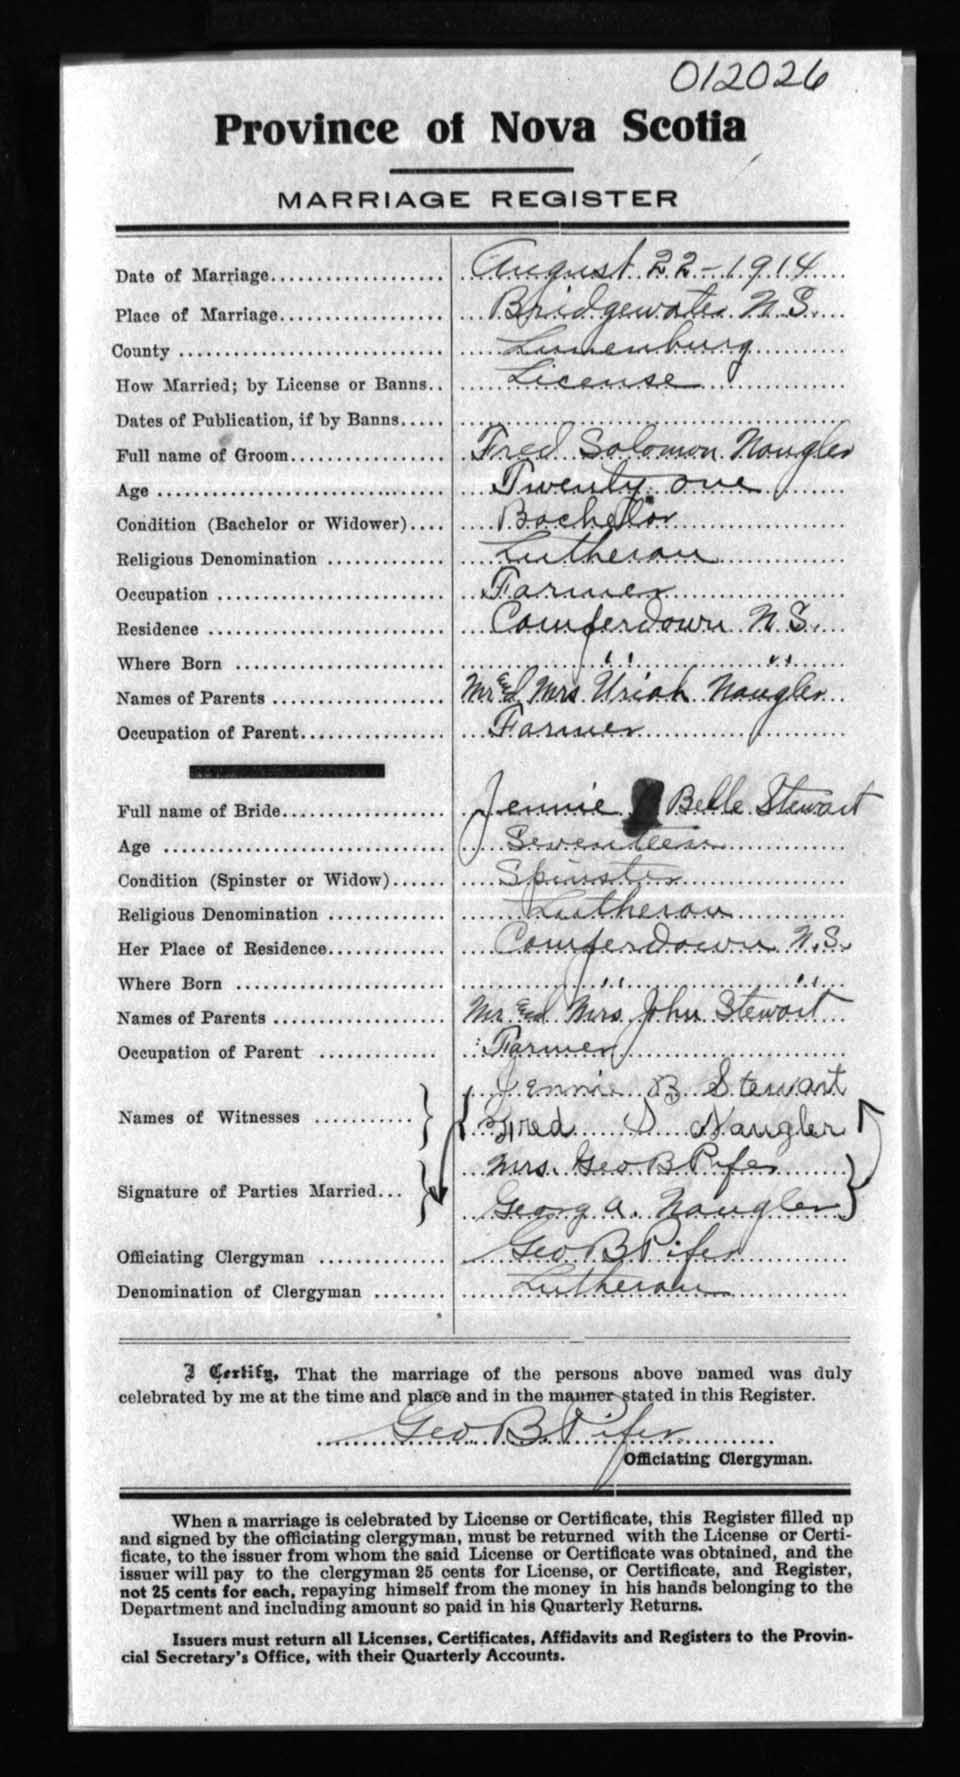 012026
Province of Nova Scotia
MARRIAGE REGISTER
Date of Marriage.................... August 22-1914
Place of Marriage................... Bridgewater N.S.
County .............................. Lunenburg
How Married; by License or Banns.. License
Dates of Publication, if by Banns.....
Full name of Groom.................. Fred Solomon Naugler
Age ................................. Twenty one
Condition (Bachelor or Widower).... Bachelor
Religious Denomination ............. Lutheran
Occupation .......................... Farmer
Residence ........................... Comferdown N.S.
Where Born ........................ " "
Names of Parents .................... Mr and Mrs Uriah Naugler
Occupation of Parent................ Farmer
Full name of Bride................... Jennie Belle Stewart
Age ................................. Seventeen
Condition (Spinster or Widow)...... Spinster
Religious Denomination ............. Lutheran
Her Place of Residence............. Comferdown N.S.
Where Born ........................ " "
Names of Parents .................... Mr and Mrs John Stewart
Occupation of Parent .............. Farmer
Names of Witnesses ........... Jennie B Stewart
Fred S Naugler
Signature of Parties Married... Mrs. Geo B Pifer
Georg A. Naugler
Officiating Clergyman .............. Geo B Pifer
Denomination of Clergyman ........ Lutheran
I Certify, That the marriage of the persons above named was duly
celebrated by me at the time and place and in the manner stated in this Register.
Geo B. Pifer
Officiating Clergyman.
When a marriage is celebrated by License or Certificate, this Register filled up
and signed by the officiating clergyman, must be returned with the License or Certi-
ficate, to the issuer from whom the said License or Certificate was obtained, and the
issuer will pay to the clergyman 25 cents for License, or Certificate, and Register,
not 25 cents for each, repaying himself from the money in his hands belonging to the
Department and including amount so paid in his Quarterly Returns.
Issuers must return all Licenses, Certificates, Affidavits and Registers to the Provin-
cial Secretary's Office, with their Quarterly Accounts.